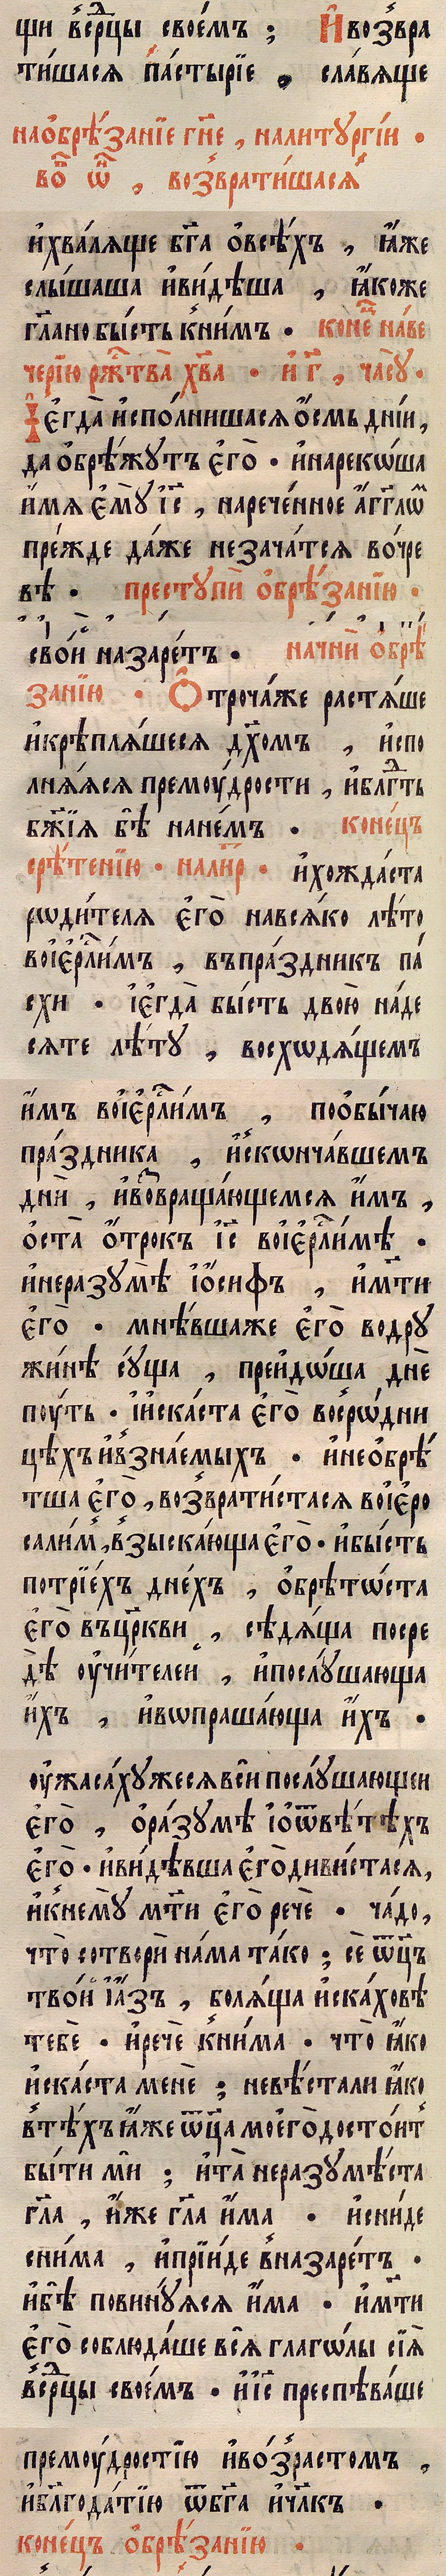 щи в̾срⷣцы своéмъ ; И҆возвра
ти́шасѧ па́стырїе , сла́вѧще
наѡ҆брѣ́занїе гнⷭ҇е , налитꙋргі́и •
во̀ ѿ , возврати́шасѧ
и҆хвалѧ́ще бг҃а ѻ҆всѣ́хъ , ꙗ҆́же
слы́шаша и҆ви́дѣша , ꙗ҆́коже
гл҃ано бы́сть к̾ни́мъ • коне́ц на́ве
че́рїю ржⷭ҇тва̀ хв҃а • и҆ г҃ , часꙋ̀ •
Е҆гда̀ и҆спо́лнишасѧ ѻ҆́смь дні́и ,
да ѻ҆брѣ́жꙋтъ є҆го̀ • и҆нареко́ша
и҆́мѧ є҆мꙋ̀ і҆с҃ , нарече́нное а҆́гг҃лѡⷨ
пре́жде да́же незача́тсѧ во́чре
вѣ • престꙋпѝ ѻ҆брѣ́занїю •
сво́й назаре́тъ • начнѝ ѻ҆брѣ́
занїю • Ѻ҆троча́же растѧ́ше
и҆крѣплѧ́шесѧ дх҃омъ , и҆спо
лнѧ́ѧсѧ премоу́дрости , и҆блгⷣть
бж҃їѧ бѣ̀ нане́мъ • коне́цъ
срѣ́тенїю • налиⷮр • и҆хожда́ста
рѡди́телѧ є҆го̀ навсѧ́ко лѣ́то
воі҆ерⷭ҇ли́мъ , въпра́здникъ па́
схи • і҆є҆гда̀ бы́сть двою̀ на́де
сѧте лѣ́тꙋ , восхѡдѧ́щемъ
и҆́мъ воі҆ерⷭ҇ли́мъ , поѻ҆бы́чаю
пра́здника , и҆скѡнча́вшемъ
днѝ , и҆воⷥвраща́ющемсѧ и҆́мъ ,
ѻ҆ста̀ ѻ҆́трокъ і҆с҃ воі҆ерⷭ҇ли́мѣ •
и҆неразꙋмѣ̀ і҆ѻ҆́сифъ , и҆мт҃и
є҆го̀ • мнѣ́вшаже є҆го̀ водрꙋ
жи́нѣ сꙋ́ща , преидо́ша днѐ
поу́ть • і҆и҆ска́ста є҆го̀ восрѡ́дни
цѣхъ и҆в̾зна́емыхъ • и҆неѻ҆брѣ́
тша є҆го̀ , возврати́стасѧ воі҆еро
сали́м , в̾зыска́юща є҆го̀ • и҆бы́сть
потрїе́хъ дне́хъ , ѻ҆брѣто́ста
є҆го̀ въцр҃кви , сѣдѧ́ща посре
дѣ̀ оу҆чи́телеи , и҆послꙋ́шающа
и҆́хъ , и҆вѡпраша́юща и҆́хъ •
оу҆жаса́хꙋжесѧ всѝ послꙋ́шающеи
є҆го̀ , ѻ҆ра́зꙋмѣ і҆ѻ҆ѿвѣ́тѣхъ
є҆го̀ • и҆ви́дѣвша є҆го̀ диви́стасѧ ,
и҆к̾немꙋ̀ мт҃и є҆го̀ речѐ • ча́до ,
что̀ сотворѝ на́ма та́ко ; сѐ ѻ҆ц҃ъ
тво́й і҆а́зъ , болѧ́ща и҆ска́ховѣ
тебѐ • и҆речѐ к̾ни́ма • что̀ ꙗ҆́ко
и҆ска́ста менѐ ; невѣ́стали ꙗ҆́ко
в̾тѣ́хъ ꙗ҆́же ѻ҆ц҃а моегѡ̀ досто́ит
бы́ти мѝ ; и҆та̀ неразꙋмѣ́ста
гл҃а , и҆́же гл҃а и҆́ма • и҆сни́де
сни́ма , и҆прїи́де в̾назаре́тъ •
и҆бѣ̀ повинꙋ́ѧсѧ и҆́ма • и҆мт҃и
є҆го̀ соблюда́ше всѧ̀ глаго́лы сїѧ̀
в̾срⷣцы свое́мъ • и҆і҆с҃ преспѣва́ше
премоу́дростїю и҆во́зрастомъ ,
и҆блг҃ода́тїю ѿбг҃а и҆члк҃ъ •
коне́цъ ѻ҆брѣ́занїю •